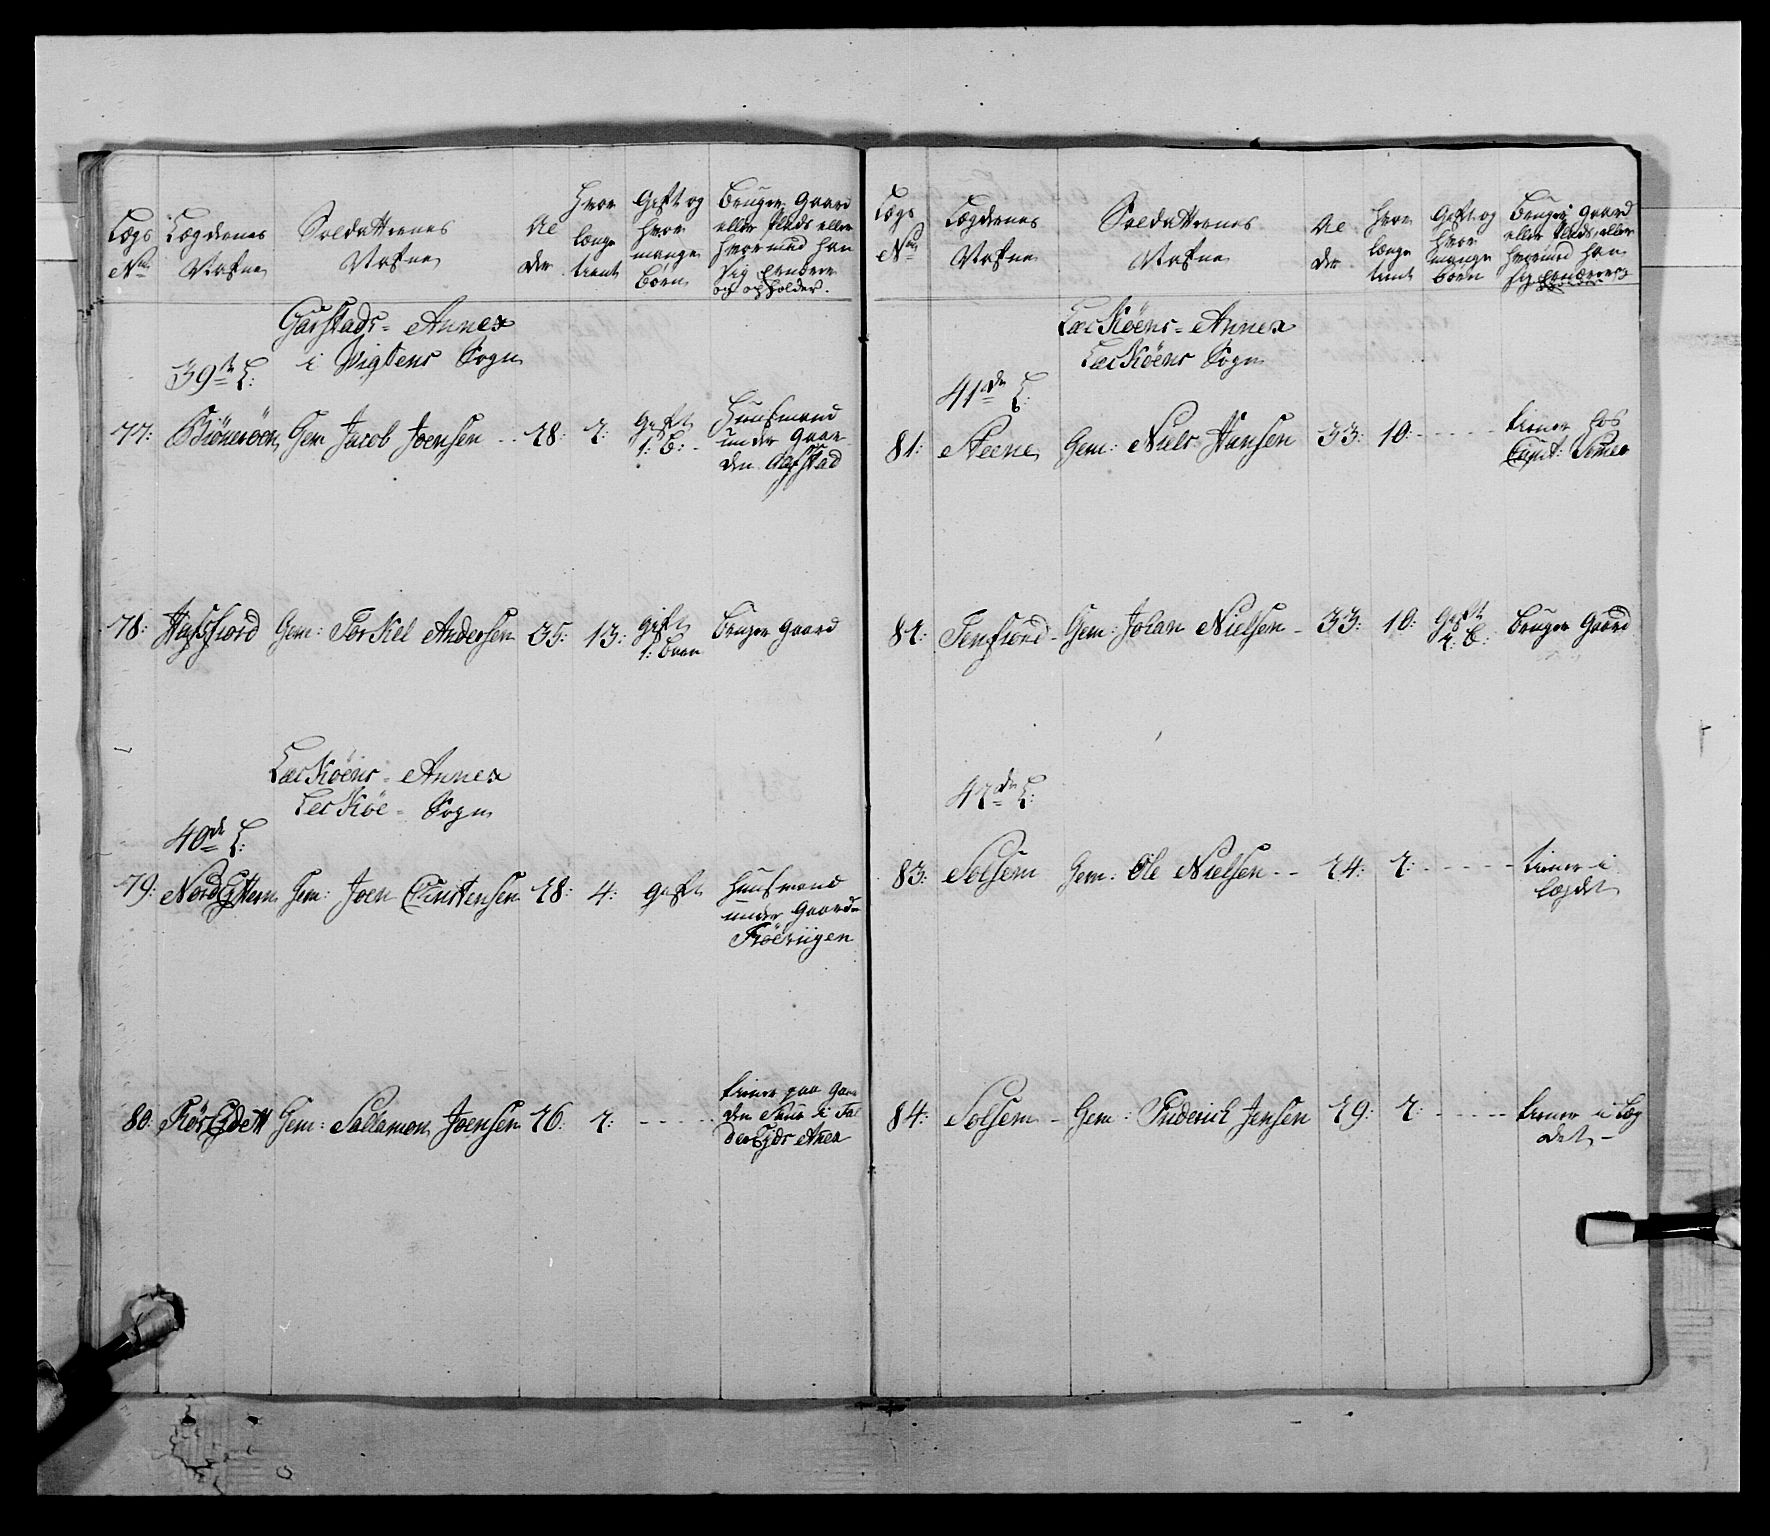 Lægs No
Lægdernes Nafne
Soldatternes Nafne
Alder
Hvor længe tient
Gift og hvor mange Børn
Bruger Gaard eller Plads eller hvormed han sig ernærer og opholder.
Garstads - Annex
i Vigtens Sogn
39te L:
77: Biönöen Gem Jacob Joensen -- 28: 2: Gift 1: B: - Huusmand under Gaarden Garstad
78: Hafsfiord Gem: Torkel Andersen 35: 13: Gift 1: Barn Bruger Gaard
Læcköens - Annex
Lecköe - Sogn
40de L:
79: Nord Gittern Gem: Joen Christensen 28: 4: Gift Huusmand under Gaard-
80: Gem: Sallamon Joensen 26: 2: ----- tiener paa Gaarden
Lægs No
Lægdernes Nafne
Soldatternes Nafne
Alder
Hvor længe tient
Gift og hvor mange Børn
Bruger Gaard eller Plads, eller hvormed han sig ernærer
Læcköens - Annex
Læcköens Sogn
41de L:
81: Steene Gem: Niels Hansen 33: 10: ---- tiener hos
82: Tenfiord - Gem: Johan Nielsen - 33: 10: Gift 2: B: Bruger Gaard
42de L:
83: Solsem Gem: Ole Nielsen -- 24: 2: ----- tiener i Lægdet
84: Solsem - Gem: Friderich Jensen 29: 2: ----- tiener i Lægdet -